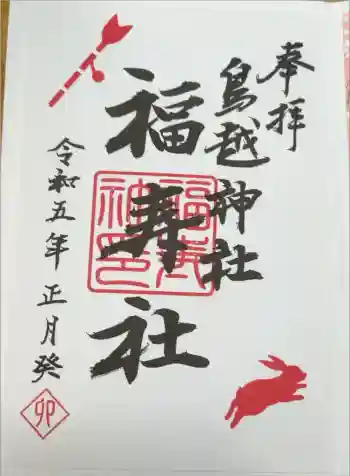 奉拝
鳥越神社
福寿社
令和五年正月癸
卯